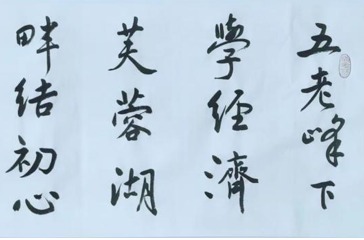 五老峰下
學經濟
芙蓉湖
畔结初心